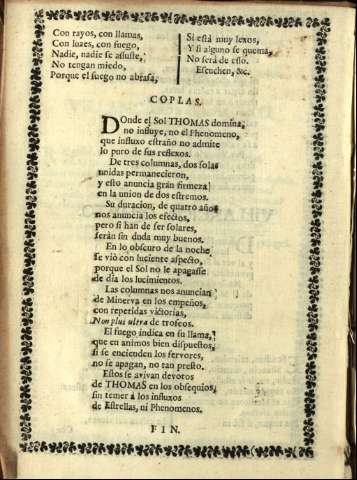 Con rayos, con llamas,
Con luzes, con fuego,
Nadie, nadie se assuste,
No tengan miedo,
Porque el fuego no abrasa,
Si está muy lexos,
Y si alguno se quema,
No será de esso.
Escuchen, &c.
COPLAS.
DOnde el Sol THOMAS domina,
no influye, no el Phenomeno,
que influxo estraño no admite
lo puro de sus reflexos.
De tres columnas, dos solas
unidas permanecieron,
y esto anuncia gràn firmeza
en la union de dos estremos.
Su duracion, de quatro años
nos anuncia los efectos,
pero si han de ser solares,
serán sin duda muy buenos.
En lo obscuro de la noche
se viò con luciente aspecto,
porque el Sol no le apagasse
de dia los lucimientos.
Las columnas nos anuncian
de Minerva en los empeños,
con repetidas victorias,
Non plus ultra de trofeos.
El fuego indica en su llama,
que en animos bien dispuestos,
si se encienden los fervores,
no se apagan, no tan presto.
Estos se avivan devotos
de THOMAS en los obsequios,
sin temer à los influxos
de Estrellas, ni Phenomenos.
FIN.